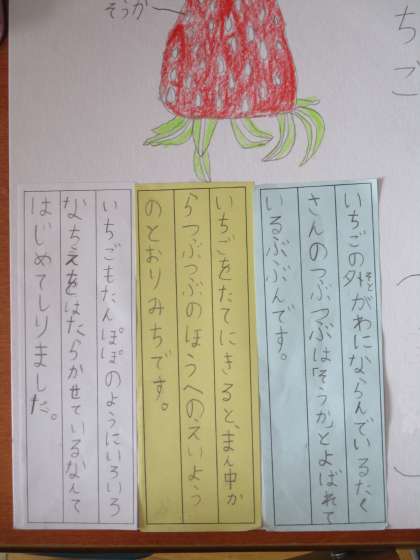 ちご
そうか
いちごの外がわにならんでいるたく
さんのつぶつぶは「そうか」とよばれて
いるぶぶんです。
いちごをたてにきると、まん中か
らつぶつぶのほうへのえいよう
のとおりみちです。
いちごもたんぽぽのようにいろいろ
なちえをはたらかせているなんて
はじめてしりました。